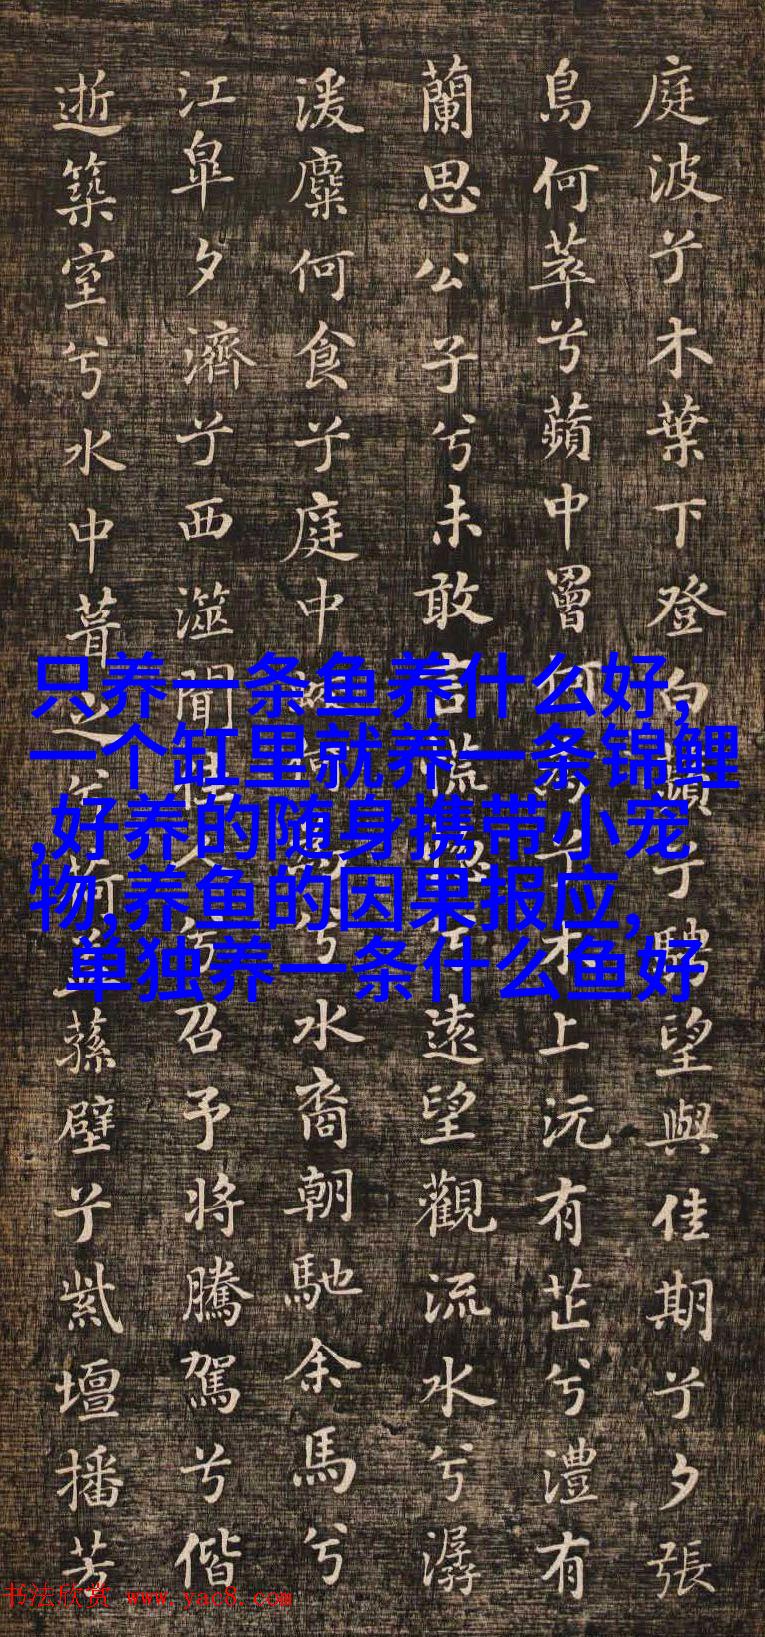 庭波兮木葉下登白兮騁望與佳期兮夕張
鳥何萃兮蘋中罾何為兮木上沅有芷兮澧有
蘭思公子兮未敢言荒忽兮遠望觀流水兮潺
湲麋何食兮庭中何兮水裔朝馳余馬兮
江皋夕濟兮西澨聞佳人兮召予將騰駕兮偕
逝築室兮水中葺之兮荷蓋蓀壁兮紫壇播芳
只养一条鱼养什么好,
一个缸里就养一条锦鲤
,好养的随身携带小宠
物,养鱼的因果报应,
单独养一条什么鱼好
书法欣赏 www.yac8.com